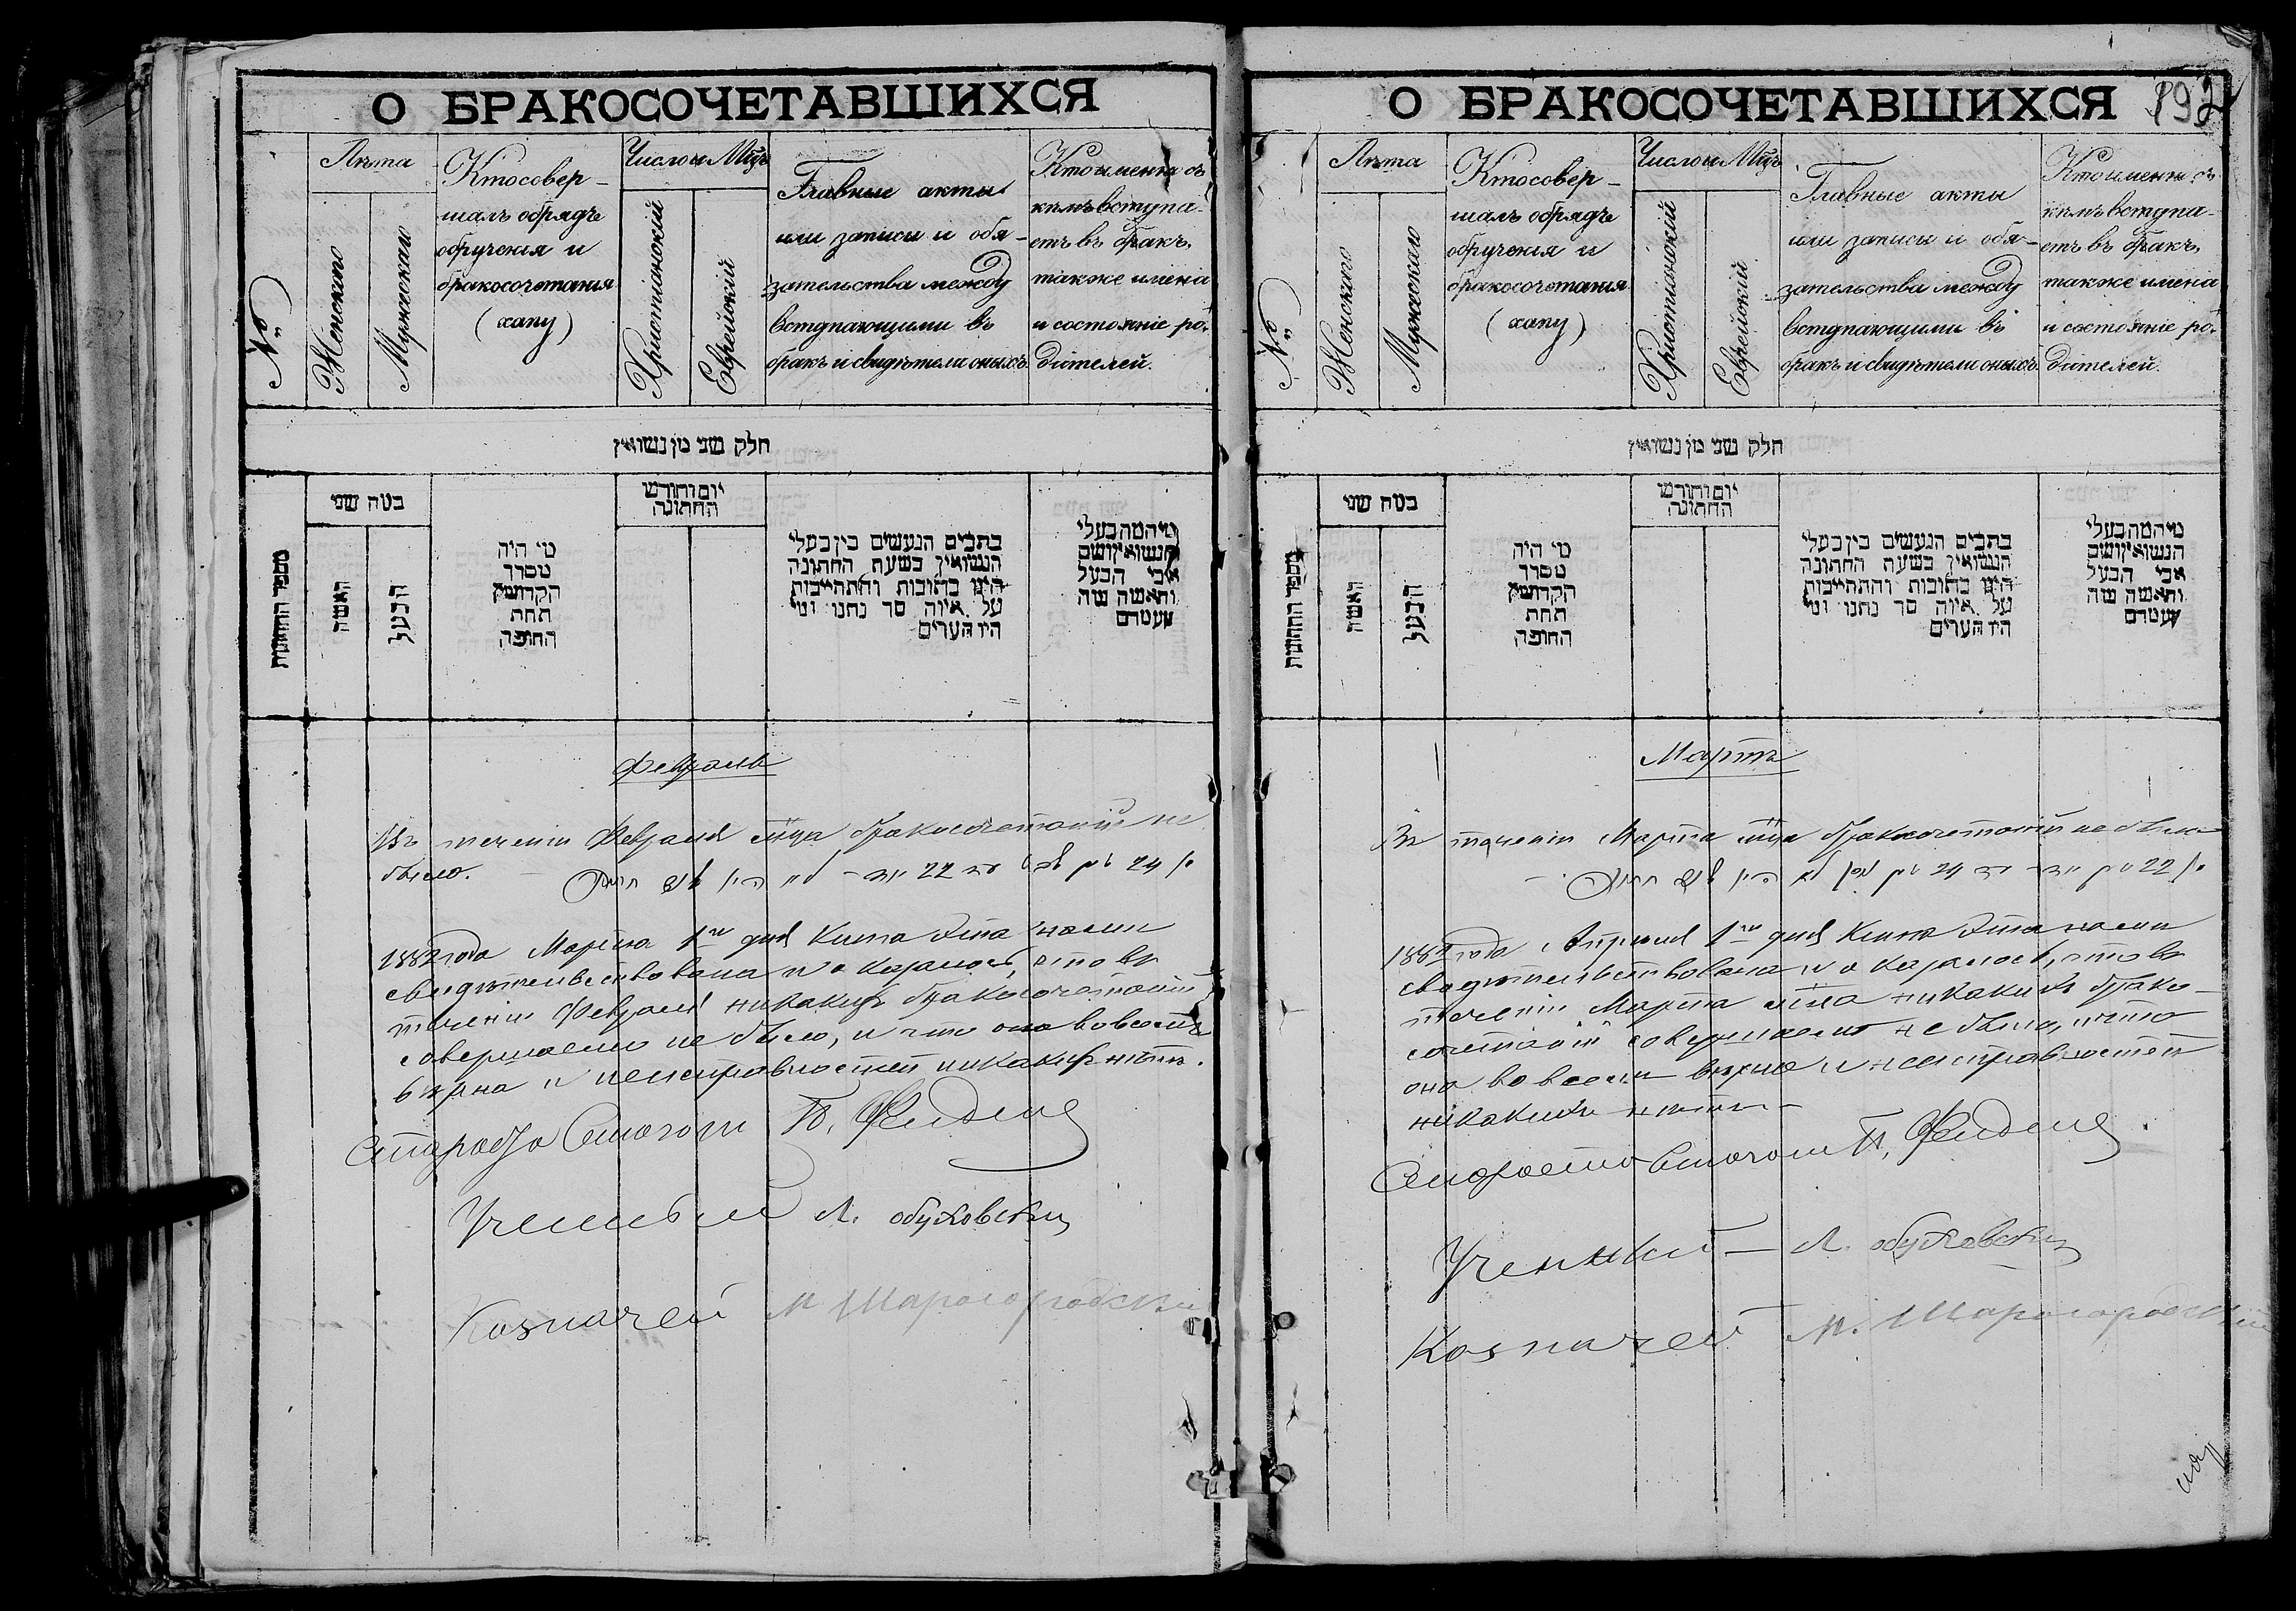 О БРАКОСОЧЕТАВШИХСЯ
№
Лѣта
Женскаго
Мужскаго
Кто совер-
шалъ обрядъ
обрученія и
бракосочетанія
(хапу)
Число и Мѣць
Христіянскій
Еврейскій
Главные акты
или записи и обя-
зательства между
вступающими въ
бракъ и свидѣтели оныхъ.
Кто именно съ
кѣмъ вступа-
етъ въ бракъ,
также имена
и состояніе ро-
дителей.
חלק שני מן נשואין
מספר החתונות
במה שני
האשה
הבעל
מי היה
מסדר
הקדושין
תחת
החופה
יום וחודש
החתונה
כתבים הנעשים בין בעלי
הנשואין בשעת החתונה
היינו כתובות והתחייבות
על איזה סך נתנו ומי
היו העדים
מי המה בעלי
הנשואין ושם
אבי הבעל
והאשה ומה
מעמדם
Февраль
Въ теченіи Февраля мѣца бракосочетаній не
было.
1882 года Марта 1го дня Книга эта нами
свидѣтельствована и оказалось, что въ
теченіи Февраля никакихъ бракосочетаній
совершаемо не было, и что она во всемъ
вѣрна и неисправностей никакихъ нѣтъ.
П. Фельдма
Ученый Л. Обуховскій
Казначей М Шарогородскій
О БРАКОСОЧЕТАВШИХСЯ 192
№
Лѣта
Женскаго
Мужскаго
Кто совер-
шалъ обрядъ
обрученія и
бракосочетанія
(хапу)
Число и Мѣць
Христіянскій
Еврейскій
Главные акты
или записи и обя-
зательства между
вступающими въ
бракъ и свидѣтели оныхъ.
Кто именно съ
кѣмъ вступа-
етъ въ бракъ,
также имена
и состояніе ро-
дителей.
חלק שני מן נשואין
מספר החתונות
במה שני
האשה
הבעל
מי היה
מסדר
הקדושין
תחת
החופה
יום וחודש
החתונה
כתבים הנעשים בין בעלי
הנשואין בשעת החתונה
היינו כתובות והתחייבות
על איזה סך נתנו ומי
היו העדים
מי המה בעלי
הנשואין ושם
אבי הבעל
והאשה ומה
מעמדם
Мартъ
Въ теченіи Марта мѣца бракосочетаній не было
1882 года Апреля 1го дня Книга эта нами
свидѣтельствована и оказалось, что въ
теченіи Марта мѣца никакихъ брако-
сочетаній совершаемо не было, и что
она во всемъ вѣрна и неисправностей
никакихъ нѣтъ -
П. Фельдма
Ученый - Л. Обуховскій
Казначей М. Шарогородскій